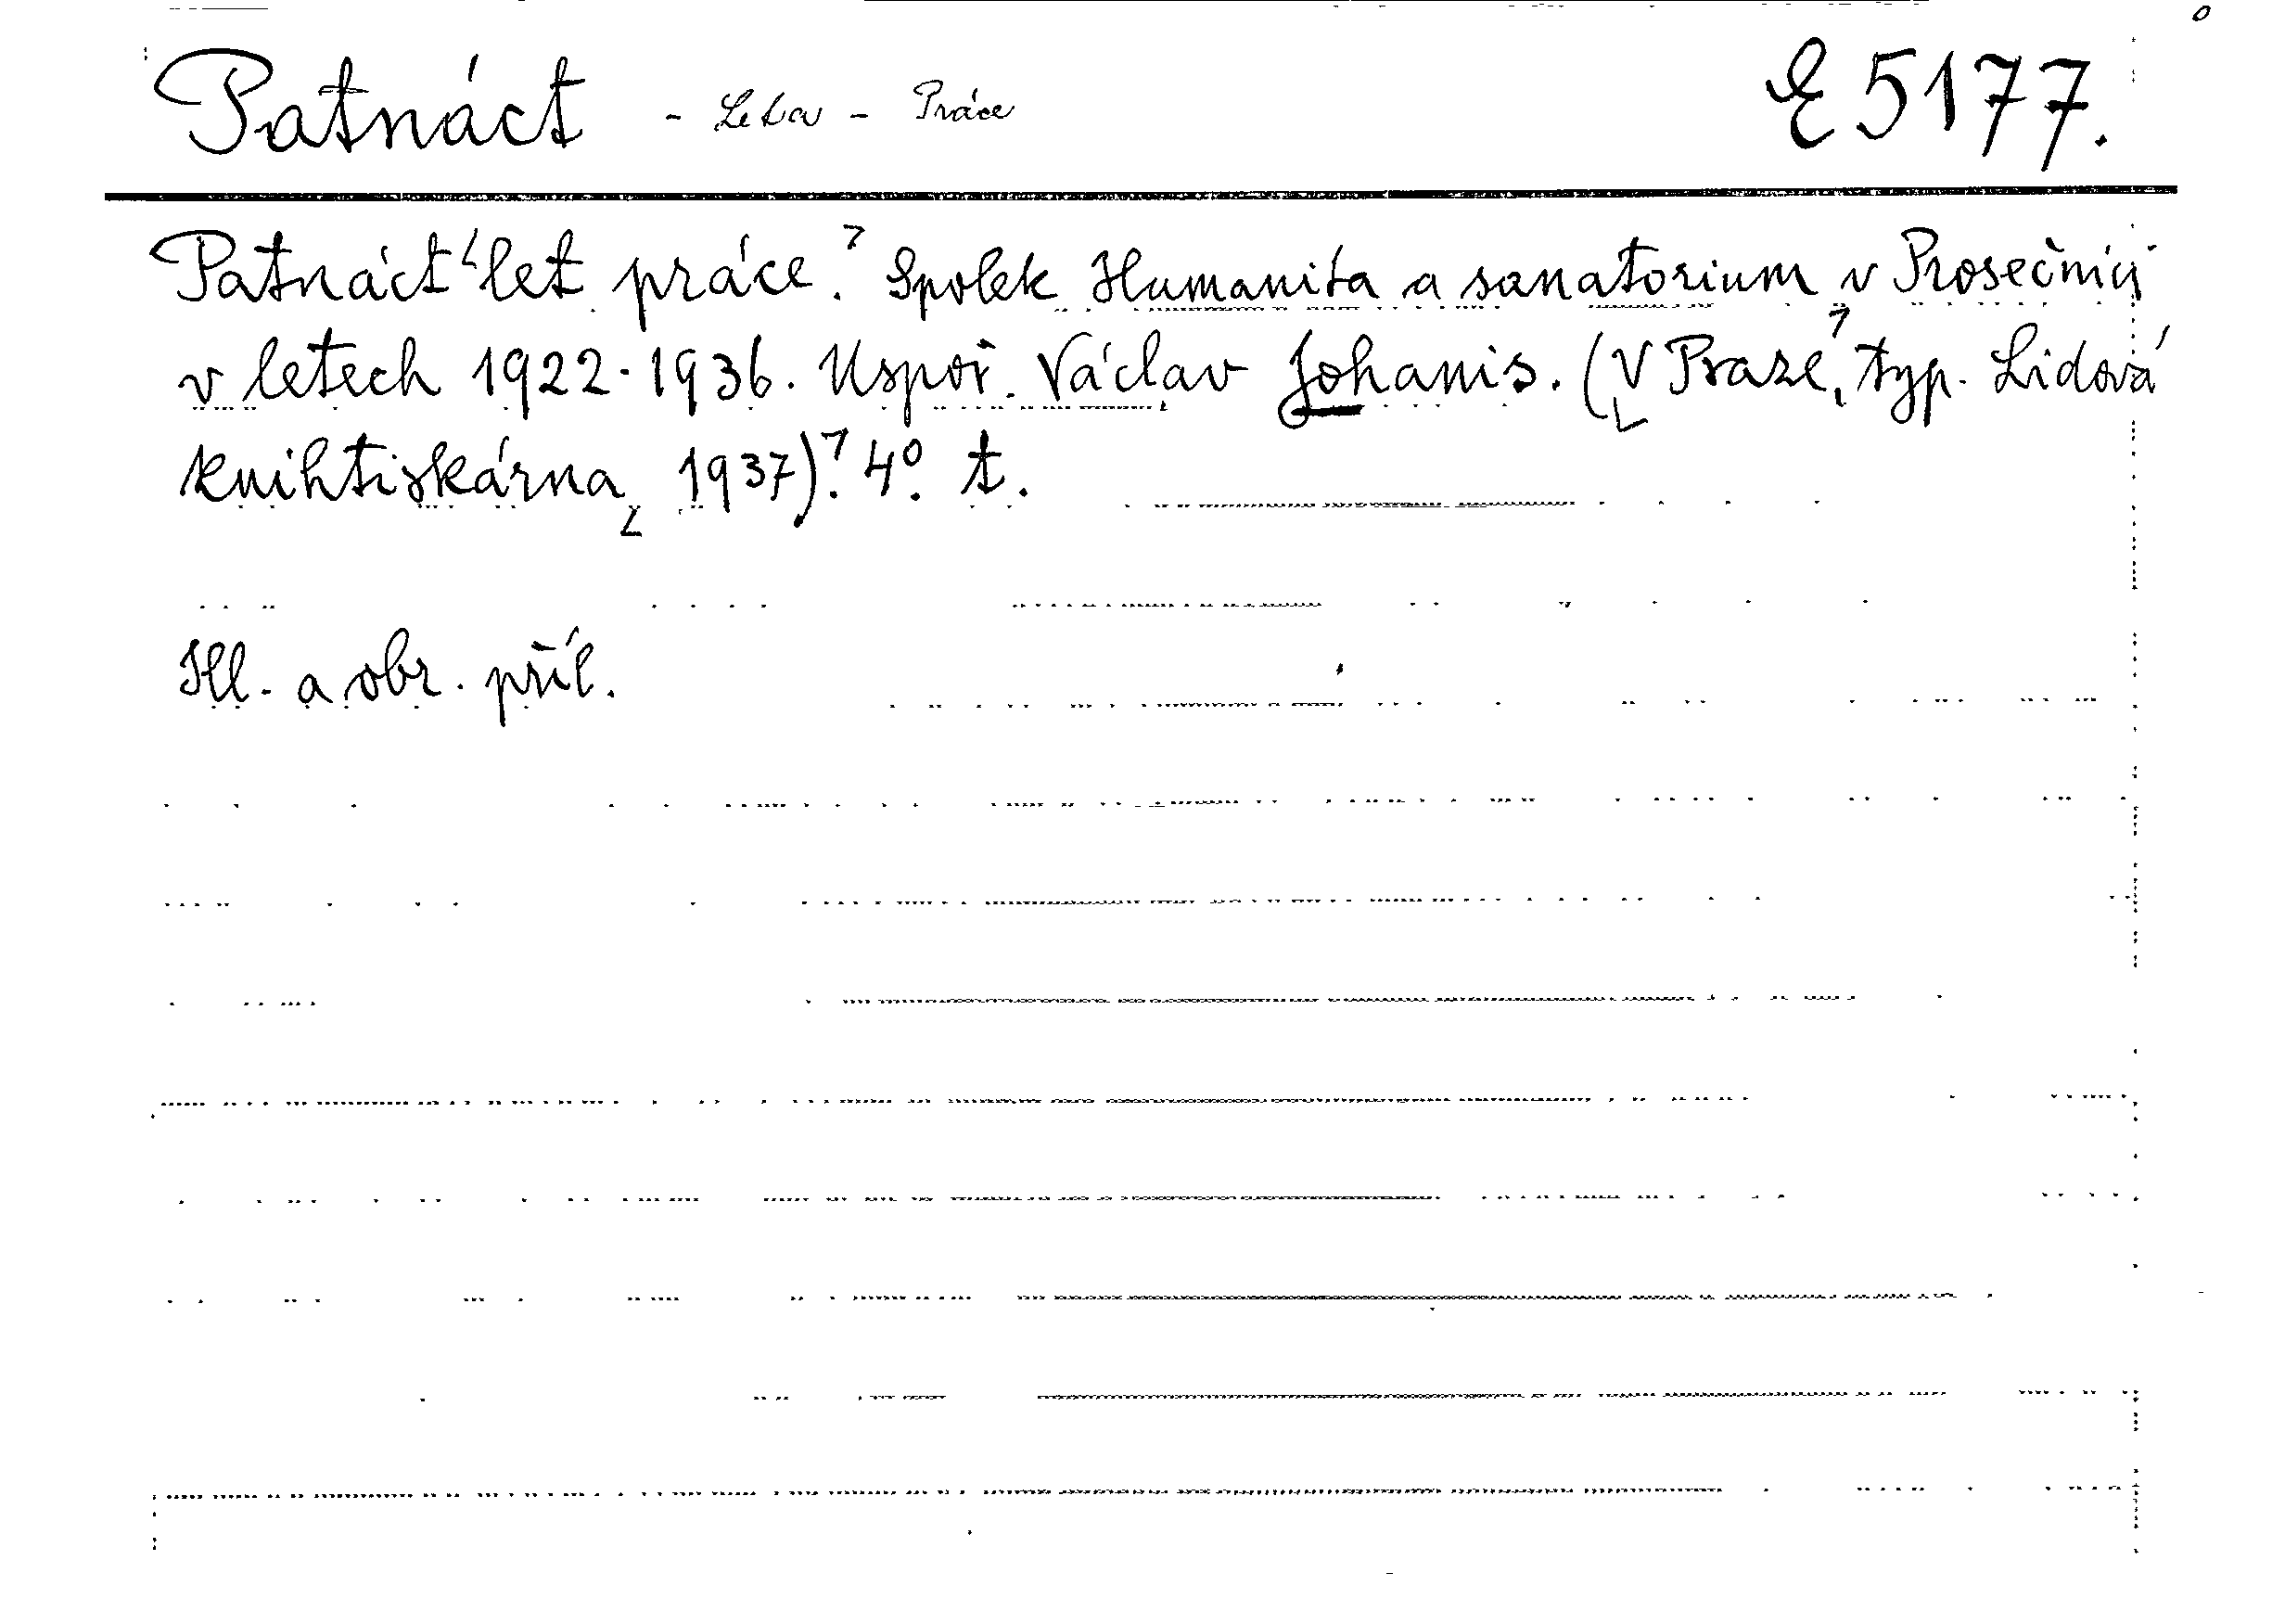 Patnáct - Leta - Práce E 5177.
Patnáct let práce. Spolek Humanita a sanatorium v Prosečnici
v letech 1922-1936. Uspoř. Václav Johanis. (V Praze, typ. Lidová
knihtiskárna, 1937). 4°. t.
Ill. a obr. příl.